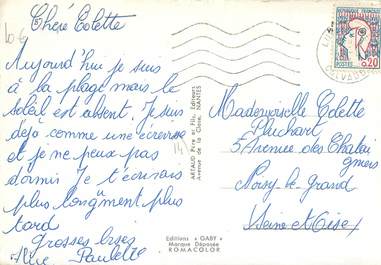 Chère Colette
Aujourd'hui je suis
à la plage mais le
soleil est absent. Je suis
dejà comme une écrevisse
et je ne peux pas
dormir Je t'écrirais
plus longuement plus
tard
grosses bises
Paulette
ARTAUD Père et Fils, Editeurs
Avenue de la Close, NANTES
Editions « GABY »
Marque Déposée
ROMACOLOR
REPUBLIQUE FRANÇAISE
POSTES 0,20
Mademoiselle Colette
Pluchart
5 Avenue des Chatai
gniers
Noisy-le-grand
Seine et Oise